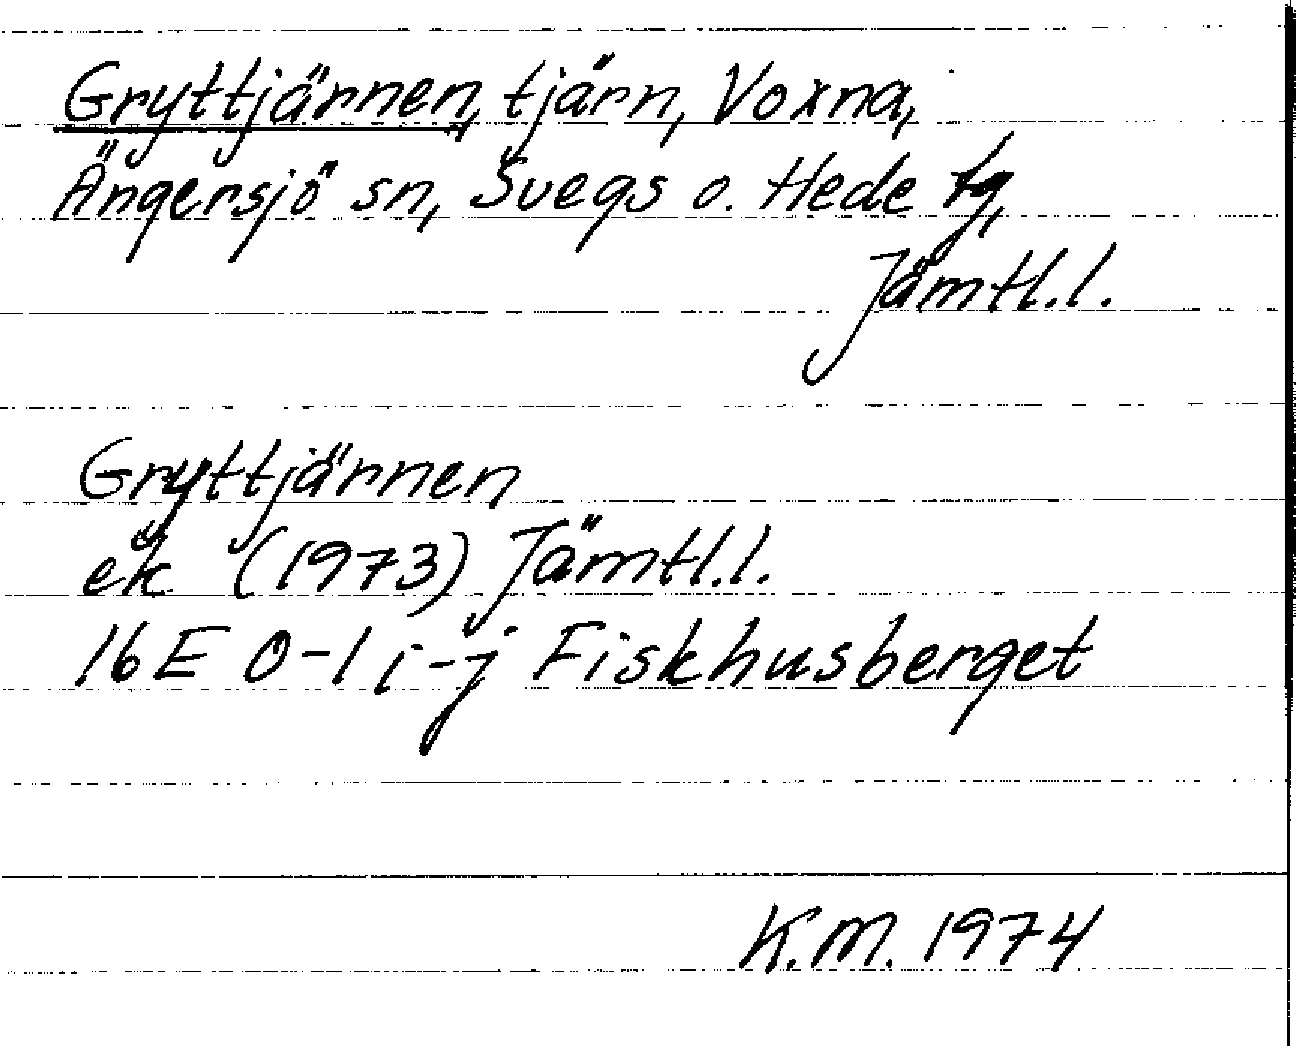 Gryttjärnen, tjärn, Voxna,
Ängersjö sn, Svegs o. Hede tg,
Jämtl.l.
Gryttjärnen
ek (1973) Jämtl.l.
16E 0-1 i-j Fiskhusberget
K.M. 1974